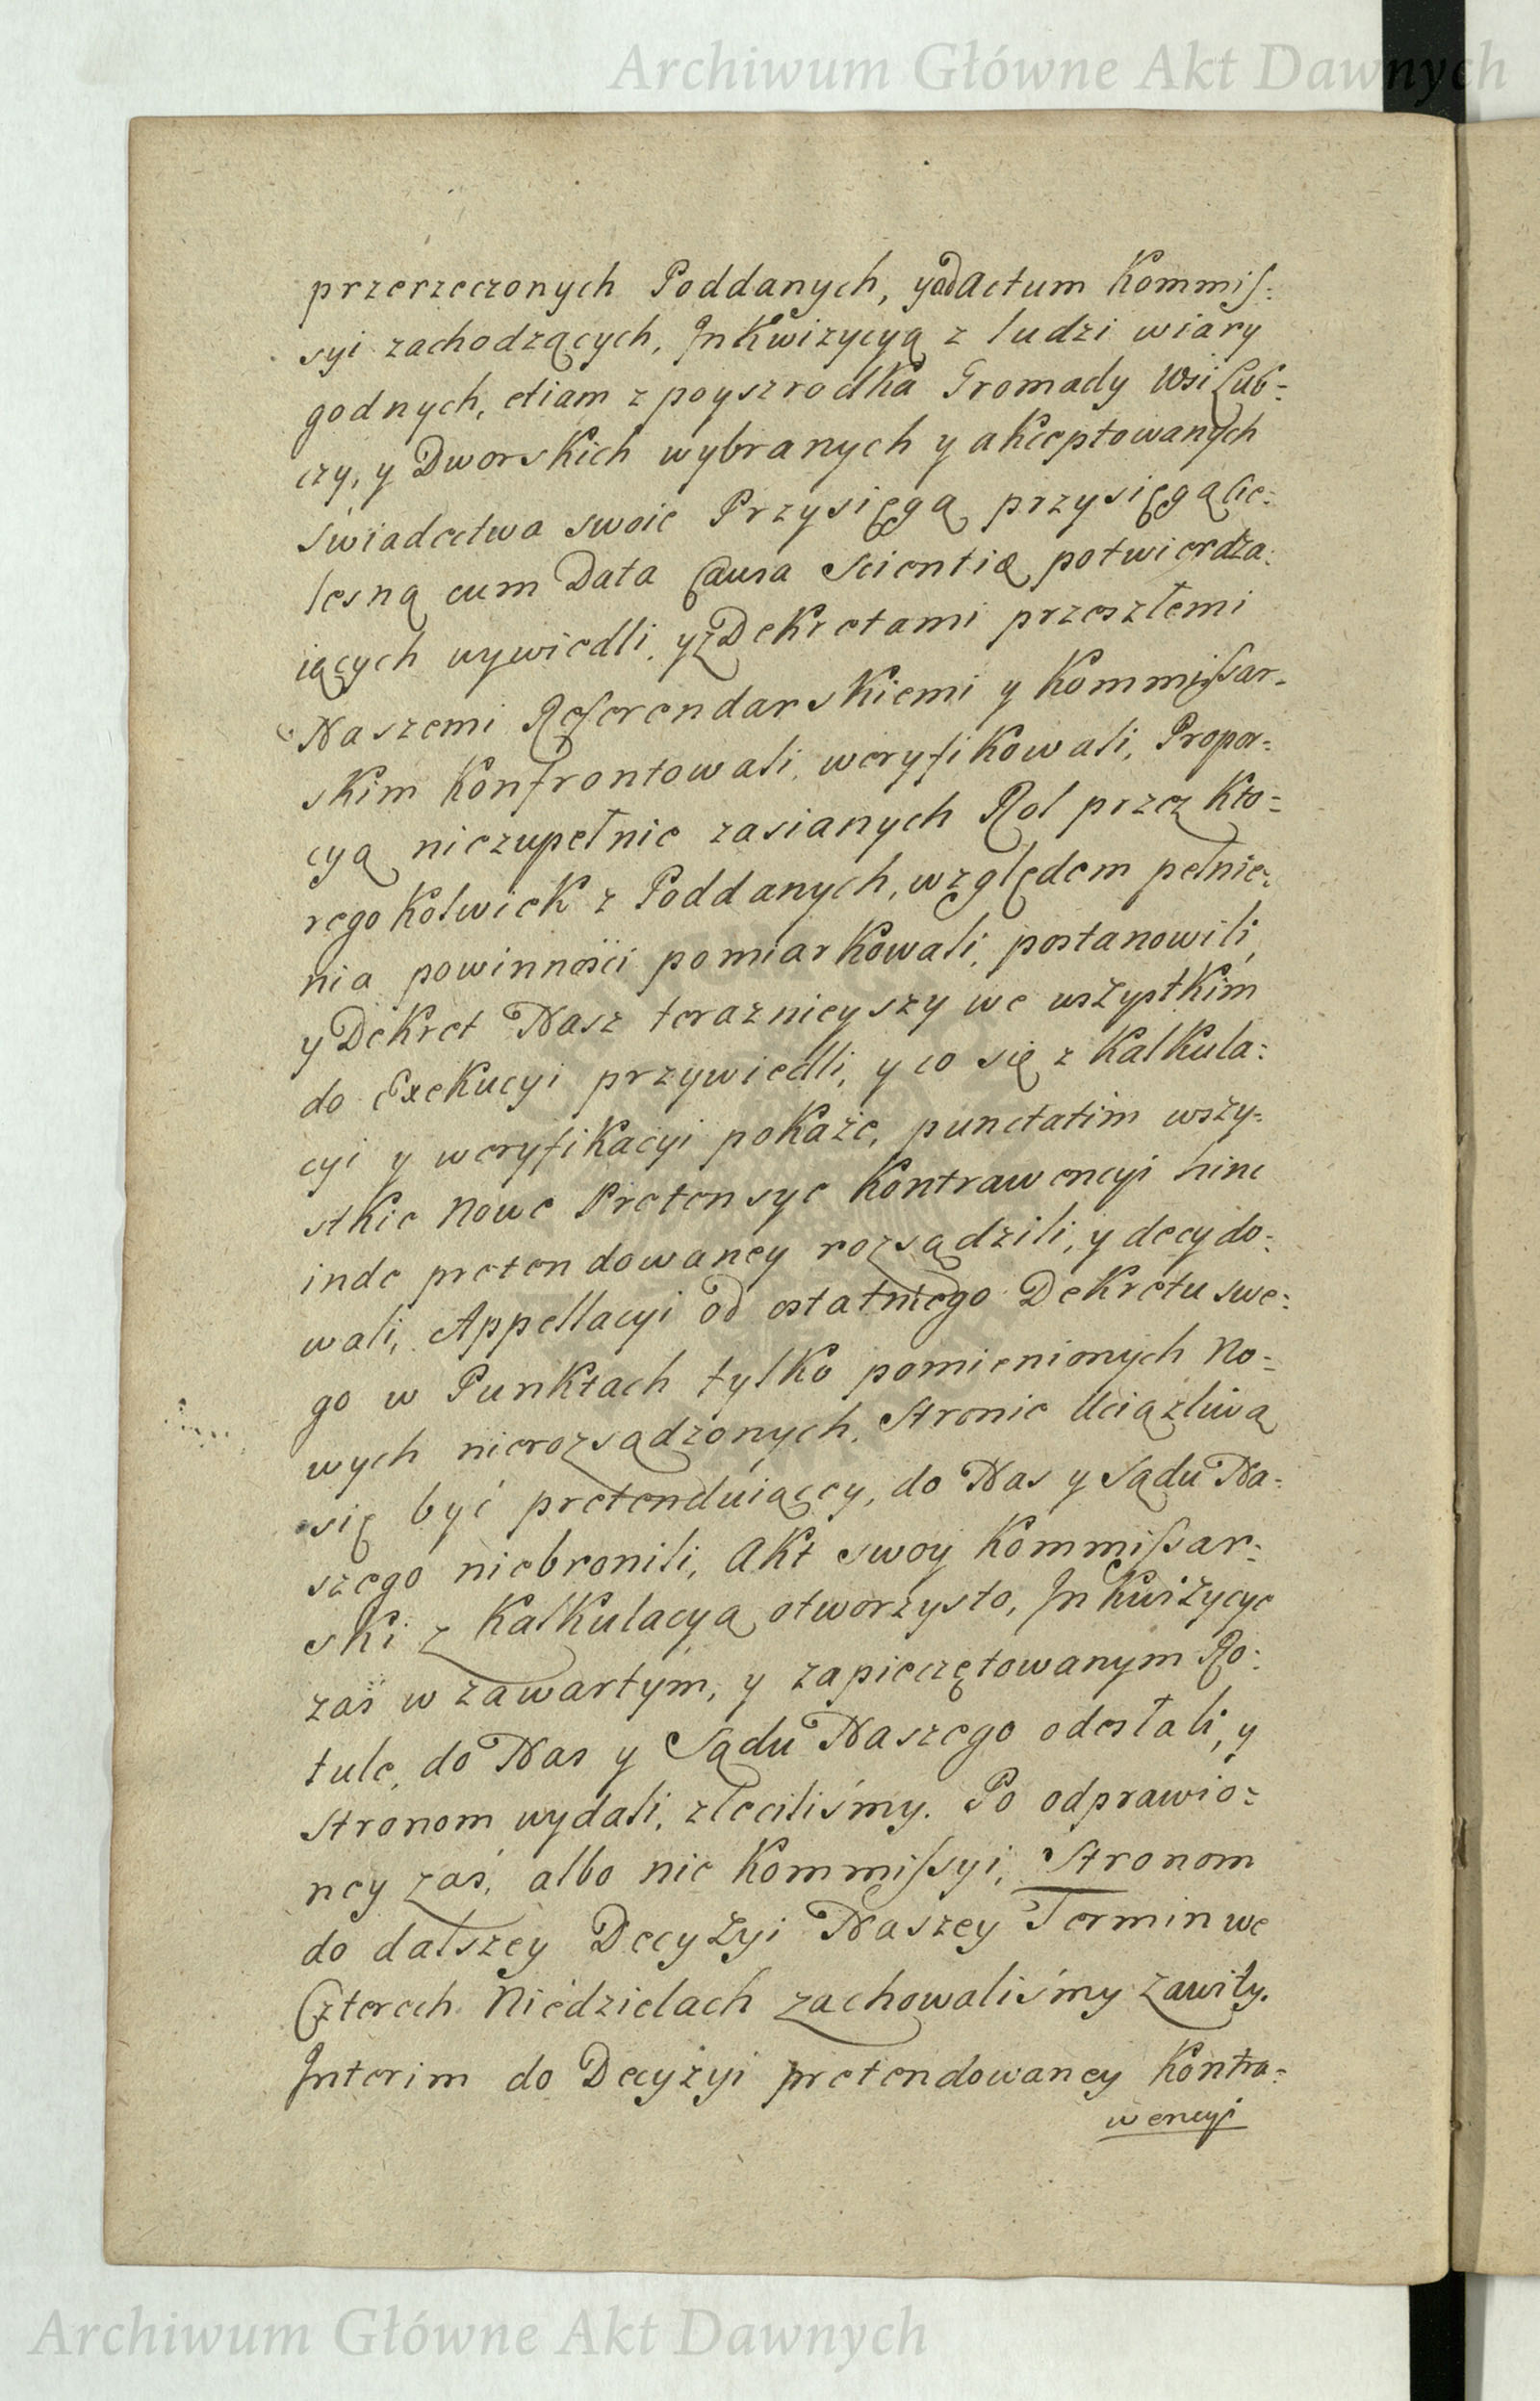 Archiwum Główne Akt Dawnych
przerzeczonych Poddanych, y ad actum Kommis:
syi zachodzących, Inkwizycyą z ludzi wiary
godnych, etiam z poyszrodka Gromady Wsi Lub=
czy, y Dworskich wybranych y akceptowanych
świadectwa swoie Przysięgą przysięgą Cie:
lesną cum Data Causa Scientiæ potwierdza:
iących wywiedli, y z Dekretami przeszłemi
Naszemi Referendarskiemi y Kommissar-
skim Konfrontowali, weryfikowali, Propor=
cyą niezupełnie zasianych Rol przez kto=
rego kolwiek z Poddanych, względem pełnie:
nia powinności pomiarkowali, postanowili,
y Dekret Nasz teraznieyszy we wszystkim
do Exekucyi przywiedli, y co się z Kalkula:
cyi y weryfikacyi pokaże, punctatim wszy=
stkie nowe Pretensye Kontrawencyi hinc
inde pretendowaney rozsądzili, y decydo:
wali, Appellacyi od ostatniego Dekretu swe:
go w Punktach tylko pomienionych no=
wych nierozsądzonych, Stronie Uciążliwą
się być pretenduiącey, do Nas y Sądu Na:
szego niebronili, Akt swoy Kommissar:
ski z Kalkulacyą otworzysto, Inkwizycye
zaś w zawartym, y zapieczętowanym Ro:
tule, do Nas y Sądu Naszego odesłali, y
Stronom wydali, zleciliśmy. Po odprawio=
ney zaś, albo nie Kommissyi, Stronom
do dalszey Decyzyi Naszey Termin we
Czterech Niedzielach zachowaliśmy zawity.
Interim do Decyzyi pretendowaney Kontra=
wencyi
Archiwum Główne Akt Dawnych